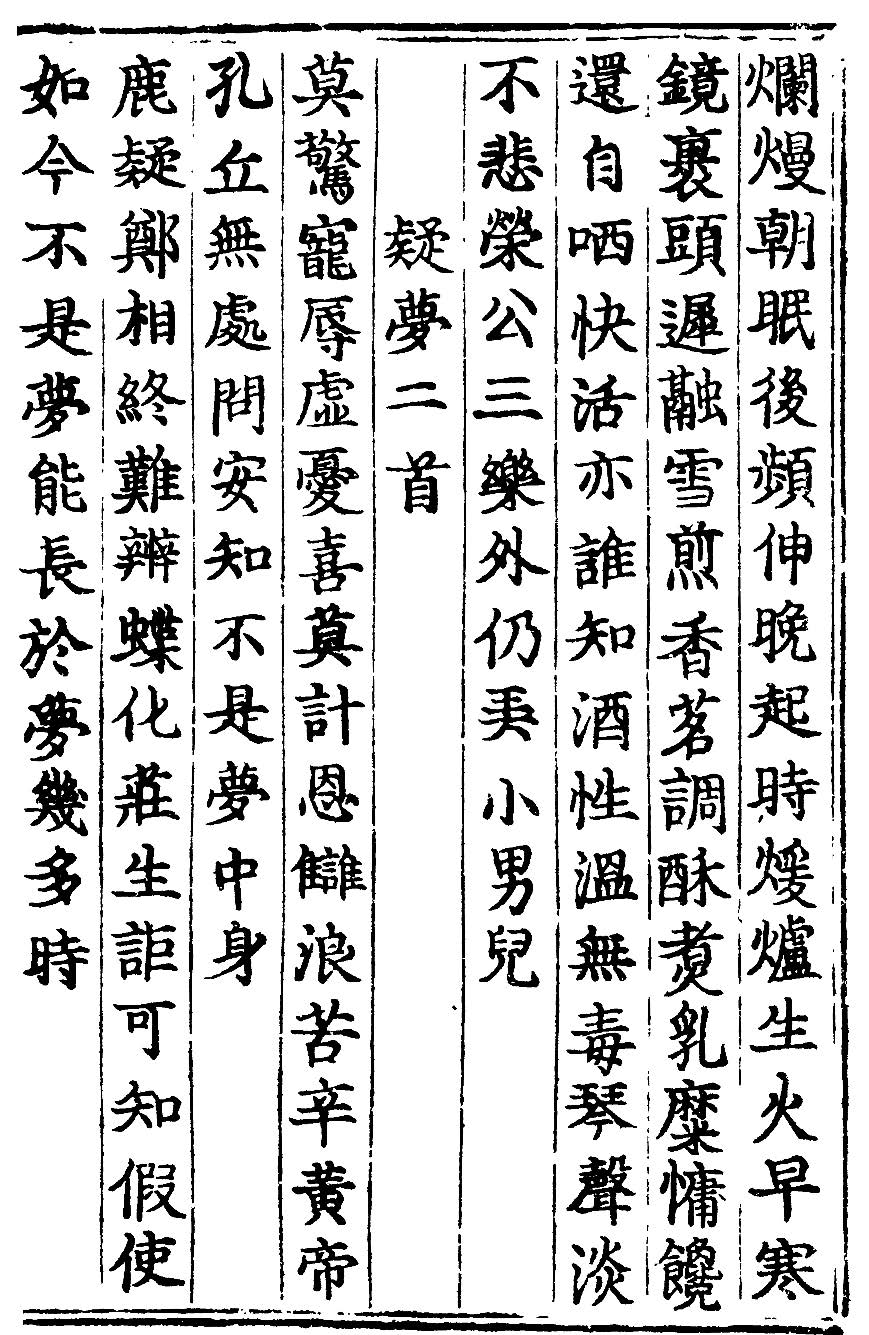 爛熳朝眠後頻伸晚起時煖爐生火早寒
鏡裹頭遲融雪煎香茗調酥煑乳糜慵饞
還自哂快活亦誰知酒性溫無毒琴聲淡
不悲榮公三樂外仍弄小男兒
疑夢二首
莫驚寵辱虛憂喜莫計恩讎浪苦辛黃帝
孔丘無處問安知不是夢中身
鹿疑鄭相終難辨蝶化莊生詎可知假使
如今不是夢能長於夢幾多時